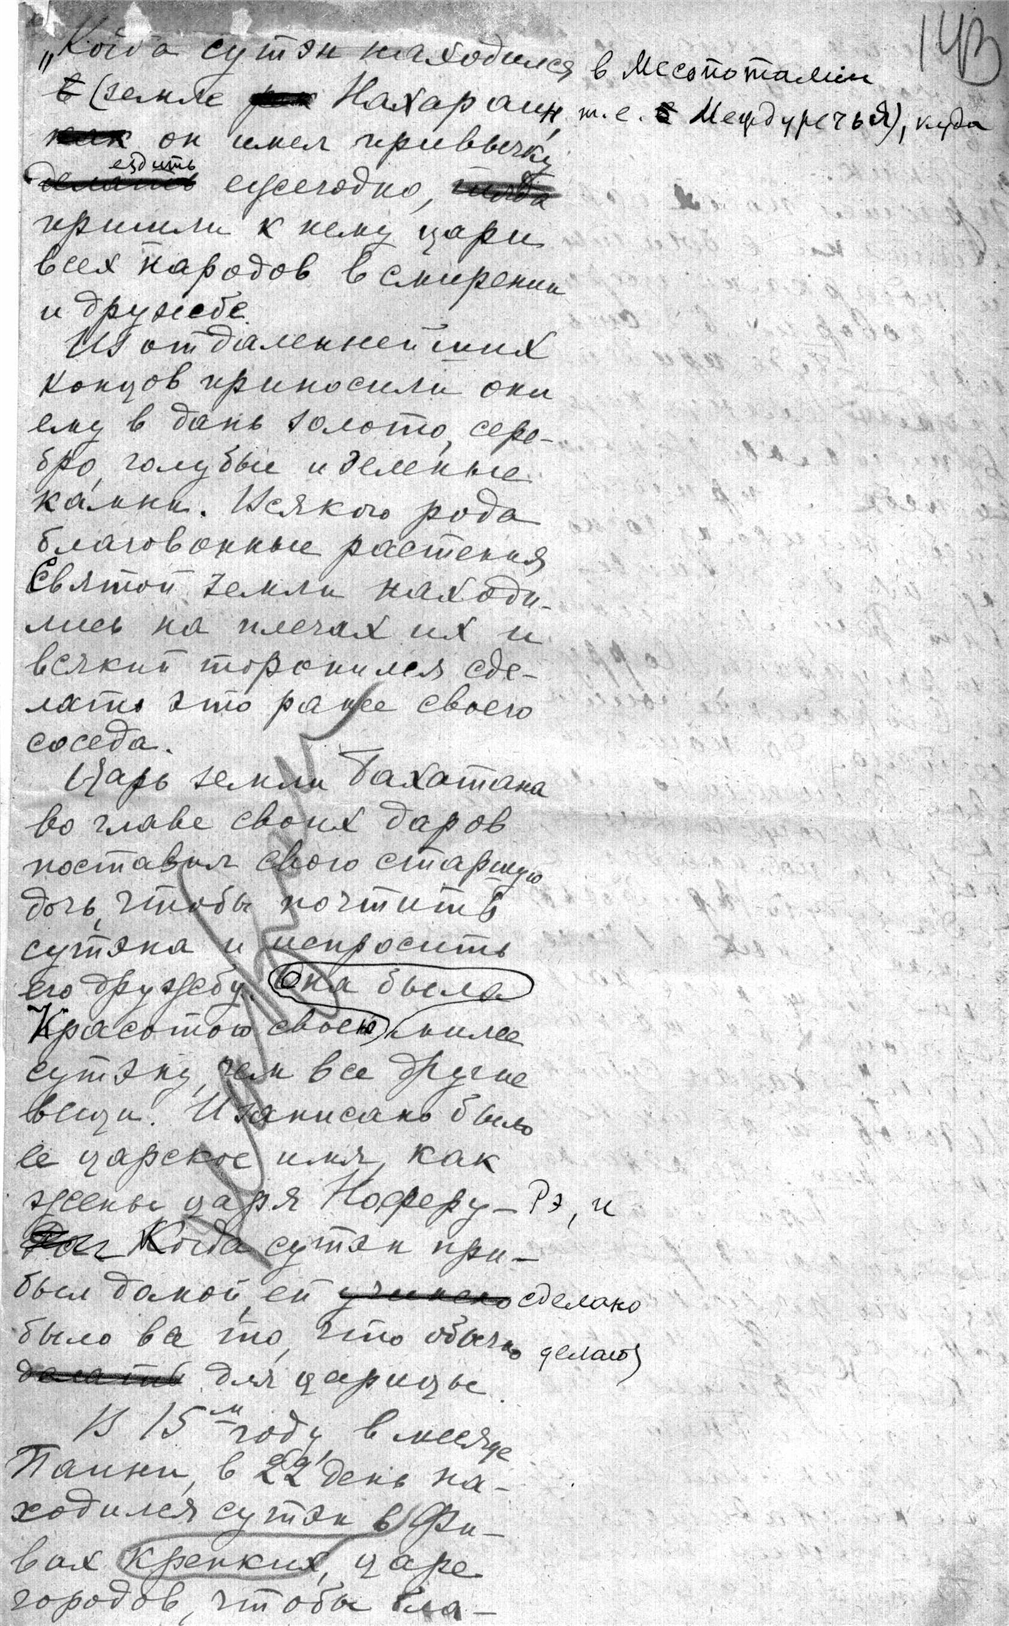 14В
„Когда сутэн находился в Месопотамии
(земле Нахараин, т.е. в Междуречья), куда
он имел привычку
ездить
ежегодно,
пришли к нему цари
всех народов в смирении
и дружбе.
Из отдаленнейших
концов приносили они
ему в дань золото, сере-
бро, голубые и зеленые
камни. Всякого рода
благовонные растения
Святой земли находи-
лись на плечах их и
всякий торопился сде-
лать это ранее своего
соседа.
Царь земли Бахатана
во главе своих даров
поставил свою старшую
дочь, чтобы почтить
сутэна и испросить
его дружбу. Она была
Красотою своею милее
сутэну, чем все другие
вещи. И записано было
ее царское имя, как
жены царя Нофреру-Рэ, и
Когда сутэн при-
был домой, ей сделано
было все то, что обычно делают
делать для царицы.
В 15м году в месяце
Паини, в 22 день на-
ходился сутэн в Фи-
вах крепких, царе
городов, чтобы бла-